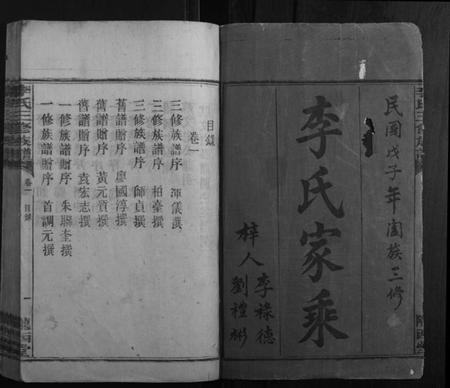 民國戊子年闔族三修
李氏家乘
梓人李祿德
劉禮彬
目錄
卷一
三修族譜序
三修族譜序 柏臺撰
三修族譜序 師貞撰
舊譜贈序 廖國淳撰
舊譜贈序 黃元貞撰
舊譜贈序 袁宏志撰
一修族譜序 朱聯奎撰
一修族譜序 首調元撰
李氏三修族譜
卷一 目錄
一
隴西堂